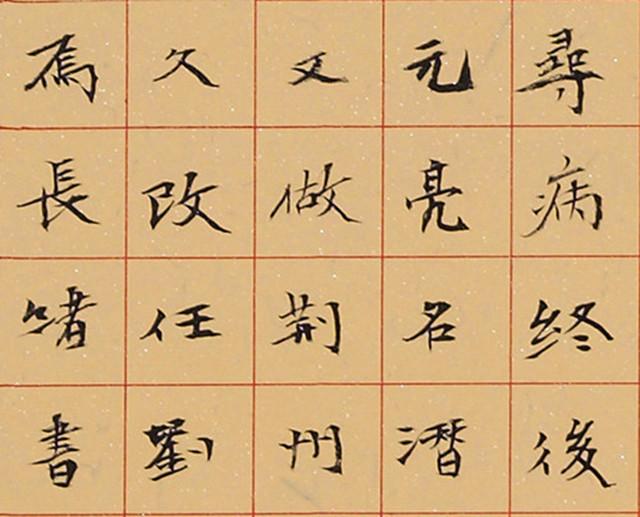 尋病终後
元亮名潛
又做荆州
久改任劉
焉長書